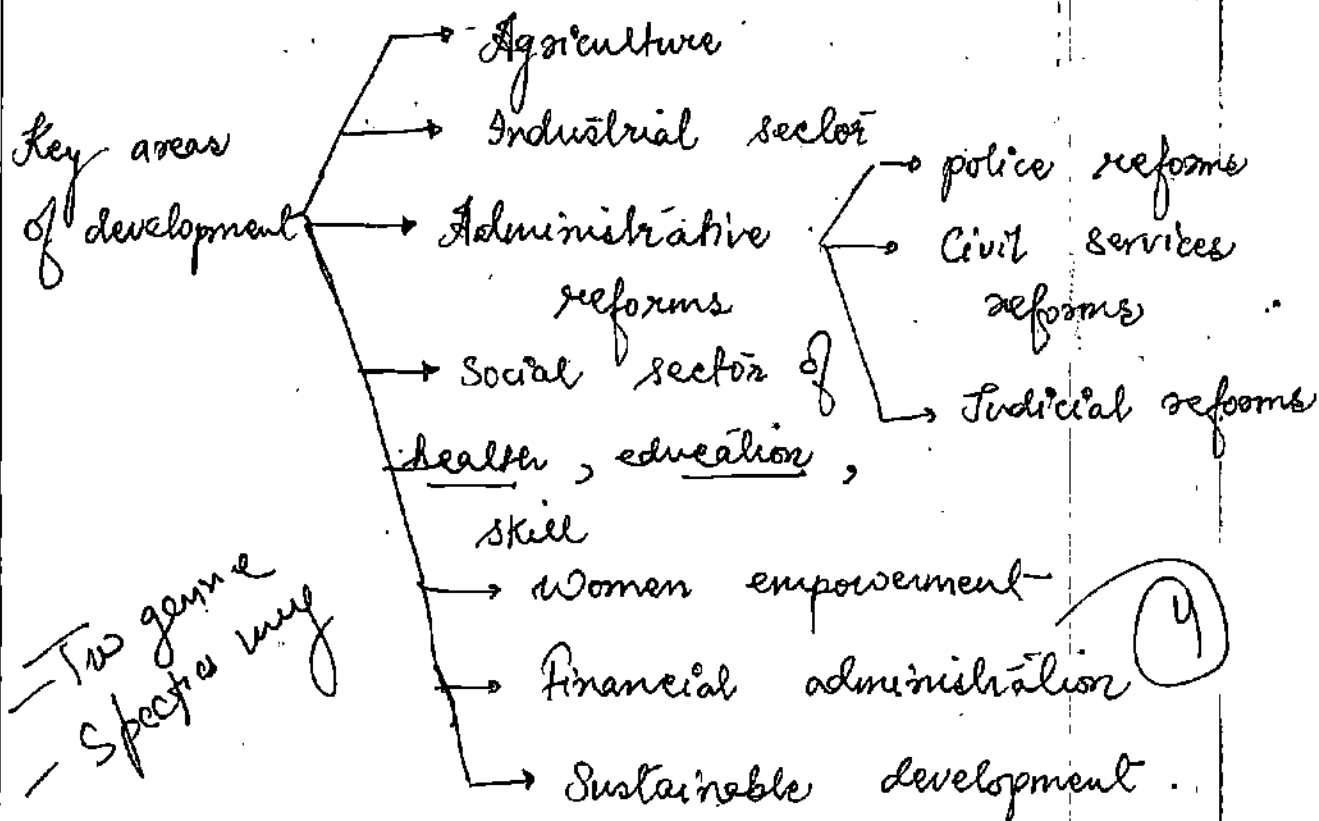 Agriculture
Key areas
of development
Industrial sector
Administrative
reforms
police reforms
Civil services
reforms
Judicial reforms
Social sector of
health, education,
skill
Women empowerment
Financial administration
Sustainable development.